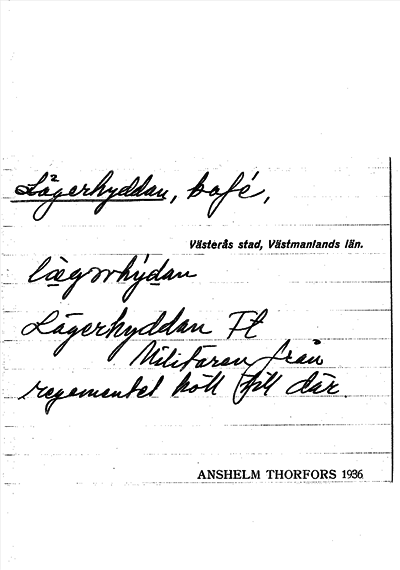 Lägerhyddan, kafé,
Västerås stad, Västmanlands län.
lægərhy̲dan
Lägerhyddan Ft
Militären från
regementet höll till där.
ANSHELM THORFORS 1936